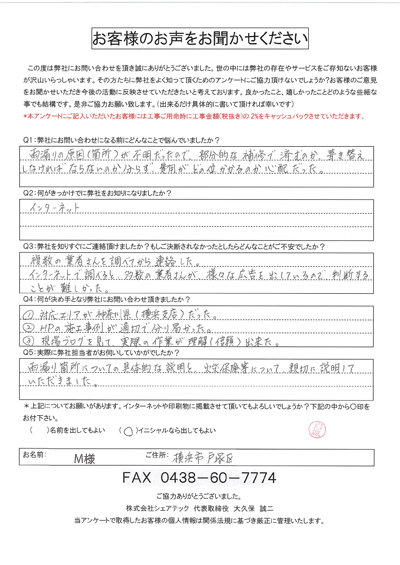 お客様のお声をお聞かせください
この度は弊社にお問い合わせを頂き誠にありがとうございました。世の中には弊社の存在やサービスをご存知ないお客様
が沢山いらっしゃいます。その方たちに弊社をよく知って頂くためのアンケートにご協力頂けないでしょうか?お客様のご意見
をお聞かせいただき今後の活動に反映させていただきたいと考えております。良かったこと、嬉しかったことどのような些細な
事でも結構です。是非ご協力お願い致します。(出来るだけ具体的に書いて頂ければ幸いです)
*本アンケートにご記入いただいたお客様には工事ご用命時に工事金額(税抜き)の2%をキャッシュバックさせていただきます。
Q1:弊社にお問い合わせになる前にどんなことで悩んでいましたか?
雨漏りの原因(箇所)が不明だったので、部分的な補修で済むのか、葺き替え
しなければならないのか分らず、費用がどの位かかるのか心配だった。
Q2:何がきっかけでに弊社をお知りになりましたか?
インターネット
Q3:弊社を知りすぐにご連絡頂けましたか?もしご決断されなかったとしたらどんなことがご不安でしたか?
複数の業者さんを調べてから連絡した。
インターネットで調べると、多数の業者さんが、様々な広告を出しているので、判断する
ことが難しかった。
Q4:何が決め手となり弊社にお問い合わせ頂きましたか?
① 対応エリアが神奈川県(横浜支店)だった。
② HPの施工事例が適切で分り易かった。
③ 現場ブログを見て、実際の作業が理解(信頼)出来た。
Q5:実際に弊社担当者がお伺いしていかがでしたか?
雨漏り箇所についての具体的な説明と、火災保険等について、親切に説明して
いただきました。
*上記についてお願いがあります。インターネットや印刷物に掲載させて頂いてもよろしいでしょうか?下記の中から○印を
お付下さい。
( )名前を出してもよい (○)イニシャルなら出してもよい
お名前: M様 ご住所: 横浜市戸塚区
FAX 0438-60-7774
ご協力ありがとうございました。
株式会社シェアテック 代表取締役 大久保 誠二
当アンケートで取得したお客様の個人情報は関係法規に基づき厳正に管理いたします。